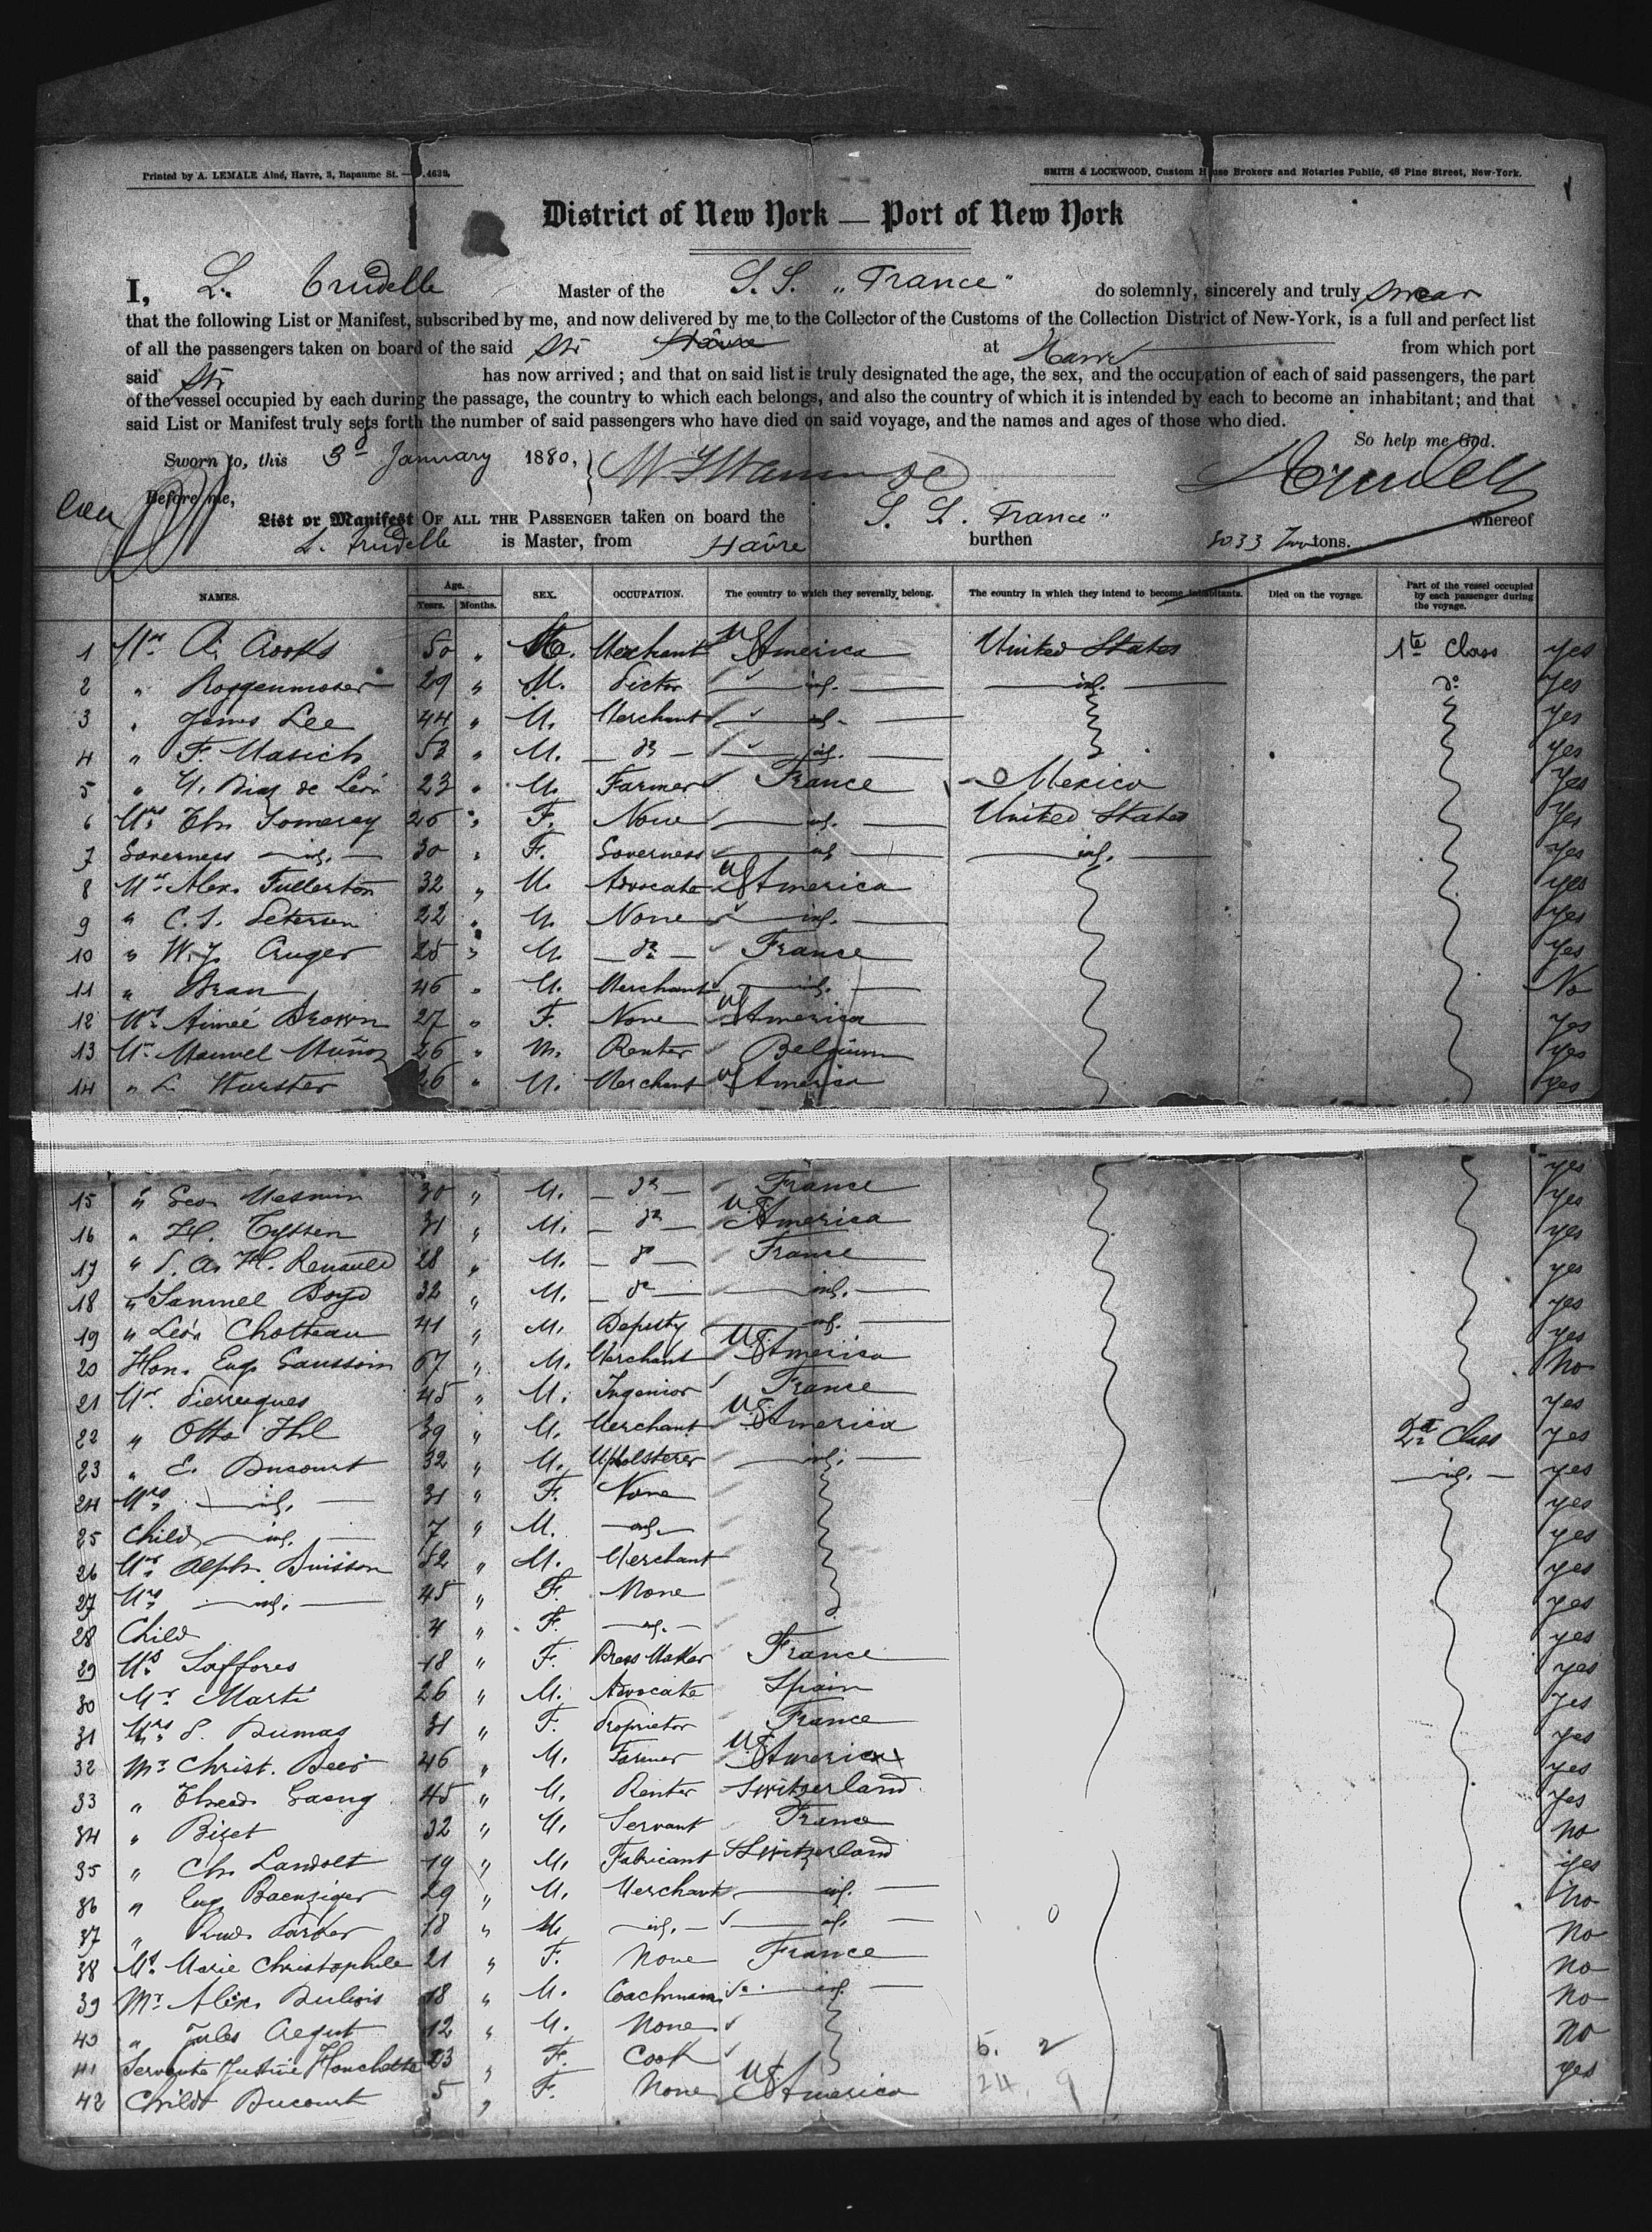 Printed by A. LEMALE Aîné, Havre, 3, Bapaume St. — .4639.
SMITH & LOCKWOOD, Custom House Brokers and Notaries Public, 48 Pine Street, New-York.
District of New York — Port of New York
I, L. Trudelle Master of the S.S. „France" do solemnly, sincerely and truly swear
that the following List or Manifest, subscribed by me, and now delivered by me to the Collector of the Customs of the Collection District of New-York, is a full and perfect list
of all the passengers taken on board of the said Str Hâvre at Havre from which port
said Str has now arrived ; and that on said list is truly designated the age, the sex, and the occupation of each of said passengers, the part
of the vessel occupied by each during the passage, the country to which each belongs, and also the country of which it is intended by each to become an inhabitant; and that
said List or Manifest truly sets forth the number of said passengers who have died on said voyage, and the names and ages of those who died.
So help me God.
Sworn to, this 3d January 1880, Trudelle
Before me,
List or Manifest OF ALL THE PASSENGER taken on board the S. S. France" whereof
L. Trudelle is Master, from Hâvre burthen tons.
NAMES. Age. Years. Months. SEX. OCCUPATION. The country to which they severally belong. The country in which they intend to become inhabitants. Died on the voyage. Part of the vessel occupied by each passenger during the voyage.
1 Mr A. Crooks 50 „ M. Merchant US America United States 1te Class yes
2 „ Roggenmoser 29 „ M. id. id. do yes
3 „ James Lee 44 „ M. Merchant id. yes
4 „ F. Masich 52 „ M. do id. yes
5 „ Diaz de León 23 „ M. Farmer France Mexico yes
6 Mrs Thr Someray 26 „ F. None id. United States yes
7 Governess id. 30 „ F. Governess id. id. yes
8 Mr Alex. Fullerton 32 „ M. Advocate US America yes
9 „ C. Petersen 22 „ M. None id. yes
10 „ W. Cruger 25 „ M. do France yes
11 „ Bran 46 „ M. Merchant id. No
12 Mrs Aimée Brown 27 „ F. None US America yes
13 Mr Manuel Muñoz 26 „ M. Renter Belgium yes
14 „ L. Wurster 26 „ M. Merchant US America yes
yes
15 „ Geo Mesmin 30 „ M. do France yes
16 „ H. Tyssen 31 „ M. do US America yes
17 „ P. A. H. Renauld 28 „ M. do France yes
18 „ Samuel Boyd 32 „ M. do id. yes
19 „ Léon Chotteau 41 „ M. Deputy id. yes
20 Hon. Eug. Gaussoin 67 „ M. Merchant US America No
21 Mr. Pierrugues 45 „ M. Ingenior France yes
22 „ Otto Ihl 39 „ M. Merchant US America 2d Class yes
23 „ E. Ducourt 32 „ M. Upholsterer id. id. yes
24 Mrs id. 31 „ F. None yes
25 Child id. 7 „ M. id. yes
26 Mr Alph. Buisson 52 „ M. Merchant yes
27 Mrs id. 45 „ F. None yes
28 Child 4 „ F. id. yes
29 Ms Laffores 18 „ F. Dress Maker France yes
30 Mr Marti 26 „ M. Advocate Spain yes
31 Mrs P. Dumas 31 „ F. Proprietor France yes
32 Mr Christ. Beer 46 „ M. Farmer US America yes
33 „ Gaeng 45 „ M. Renter Switzerland yes
34 „ Bizet 32 „ M. Servant France no
35 „ Ch. Landolt 19 „ M. Fabricant Switzerland yes
36 „ Eug. Baenziger 29 „ M. Merchant id. No
37 „ Rud. 18 „ M. id. id. 0 No
38 Ms Marie Christophile 21 „ F. None France no
39 Mr Alex. Dubois 18 „ M. Coachman id. no
40 „ Jules 12 „ M. None no
41 Servante Justine Honchette 23 „ F. Cook 6. 2 yes
42 Child Ducourt 5 „ F. None US America 24. 9